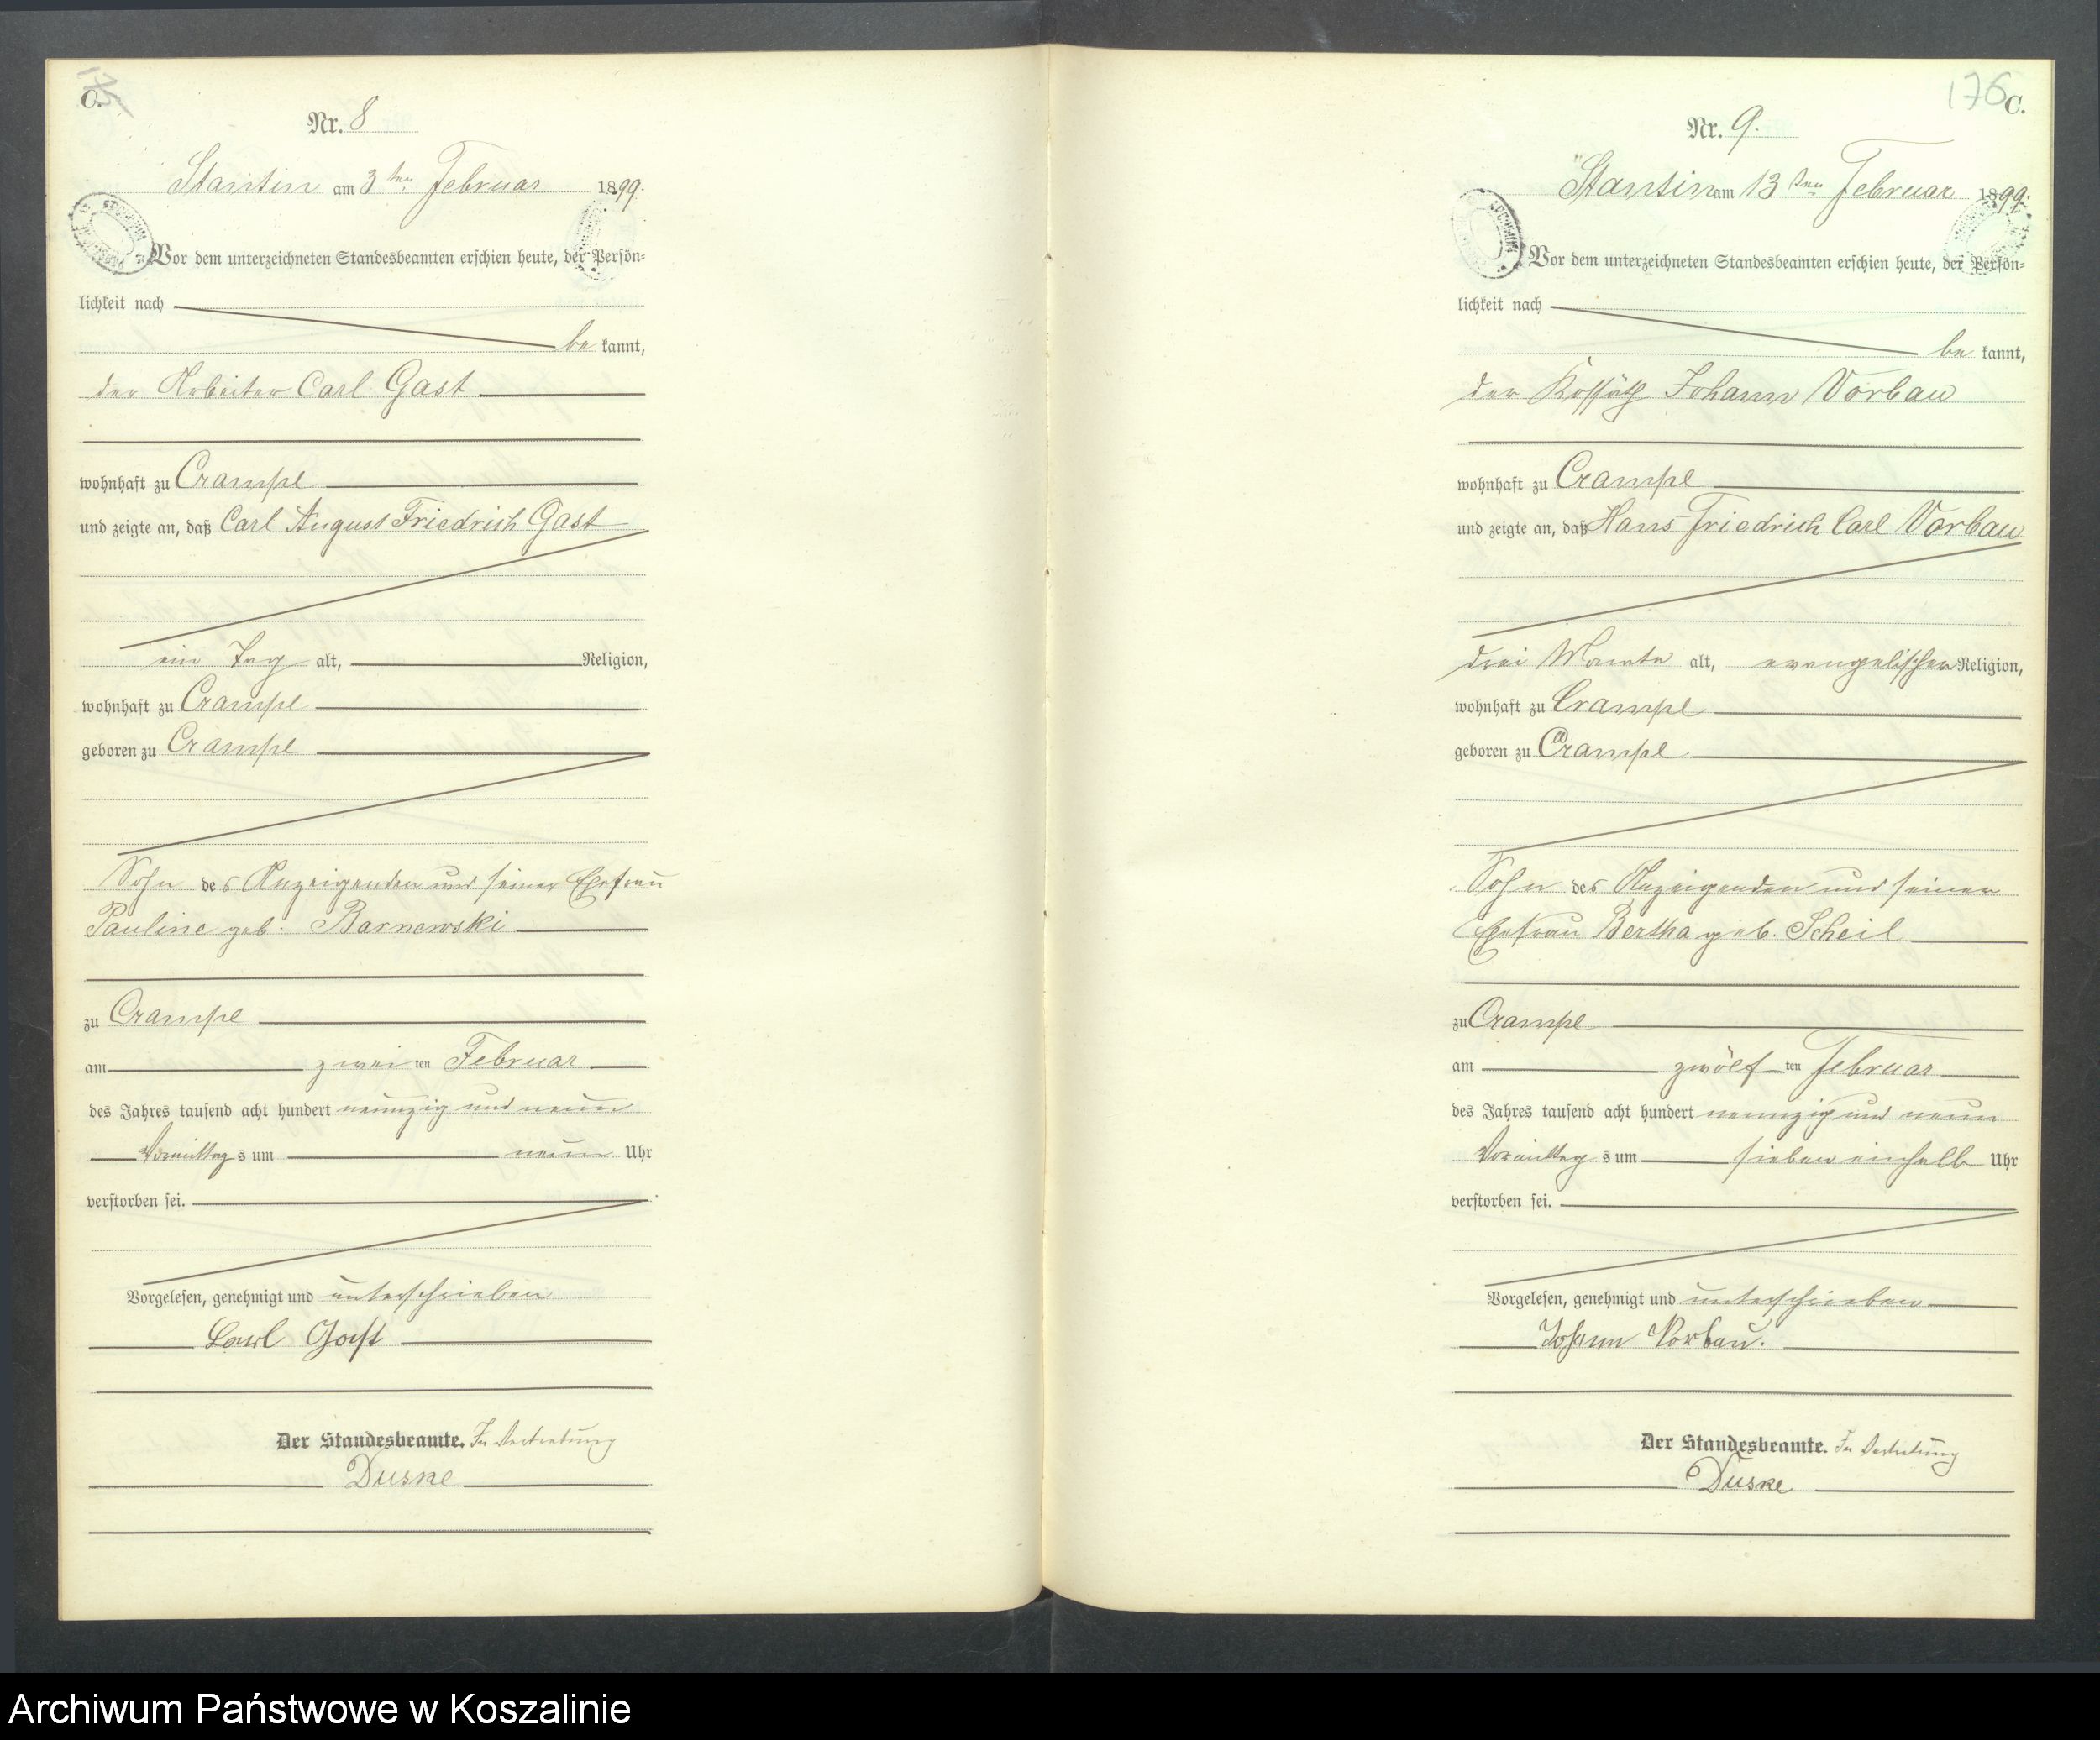 C.
Nr. 8
Stantin am 3ten Februar 1899.
Vor dem unterzeichneten Standesbeamten erschien heute, der Persön=
lichkeit nach
be kannt,
der Arbeiter Carl Gast
wohnhaft zu Crampe
und zeigte an, daß Carl August Friedrich Gast
ein Tag alt, Religion,
wohnhaft zu Crampe
geboren zu Crampe
Sohn des Anzeigenden und seiner Ehefrau
Pauline geb. Barnewski
zu Crampe
am zwei ten Februar
des Jahres tausend acht hundert neunzig und neun
Vormittag s um neun Uhr
verstorben sei.
Vorgelesen, genehmigt und unterschrieben
Carl Gast
Der Standesbeamte. In Vertretung
Duske
176 C.
Nr. 9.
Stantin am 13ten Februar 1899.
Vor dem unterzeichneten Standesbeamten erschien heute, der Persön=
lichkeit nach
be kannt,
der Kossäth Johann Vorbau
wohnhaft zu Crampe
und zeigte an, daß Hans Friedrich Carl Vorbau
drei Monate alt, evangelischer Religion,
wohnhaft zu Crampe
geboren zu Crampe
Sohn des Anzeigenden und seiner
Ehefrau Bertha geb. Scheil
zu Crampe
am zwölf ten Februar
des Jahres tausend acht hundert neunzig und neun
Vormittag s um sieben einhalb Uhr
verstorben sei.
Vorgelesen, genehmigt und unterschrieben
Johann Vorbau.
Der Standesbeamte. In Vertretung
Duske
Archiwum Państwowe w Koszalinie